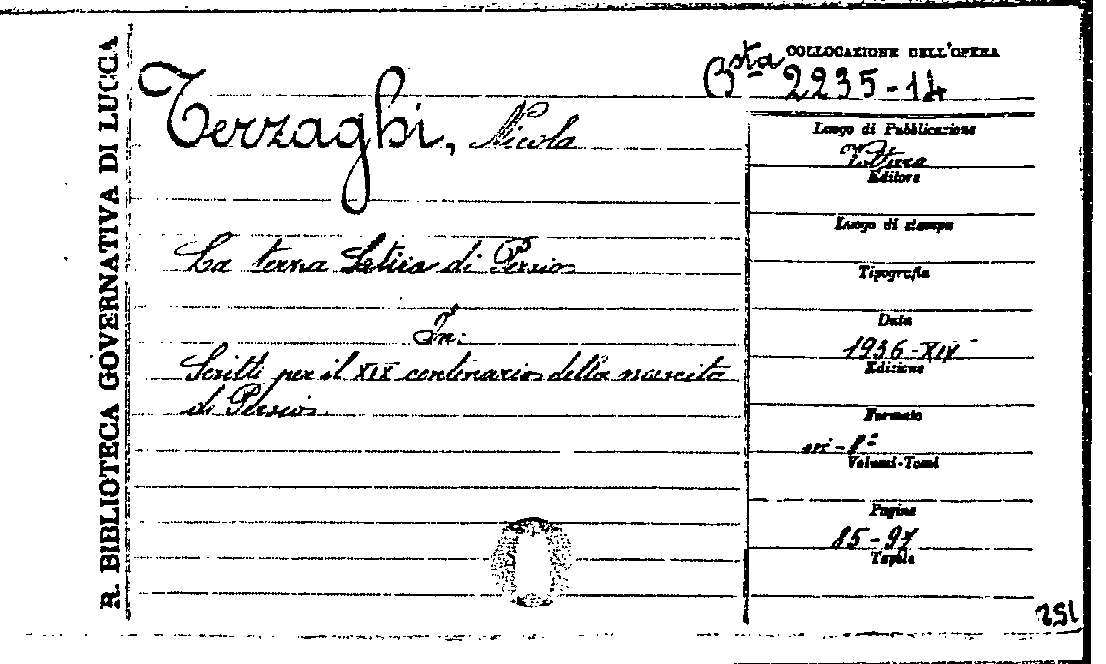 R. BIBLIOTECA GOVERNATIVA DI LUCCA
COLLOCAZIONE DELL'OPERA
Bsta 2235-14
Terzaghi, Nicola
La terza Satira di Persio
In:
Scritti per il XIX centenario della nascita
di Persio.
Luogo di Pubblicazione
Volterra
Editore
Luogo di stampa
Tipografia
Data
1936-XIV
Edizione
Formato
in-8°
Volumi-Tomi
Pagine
85-97
Tavole
251